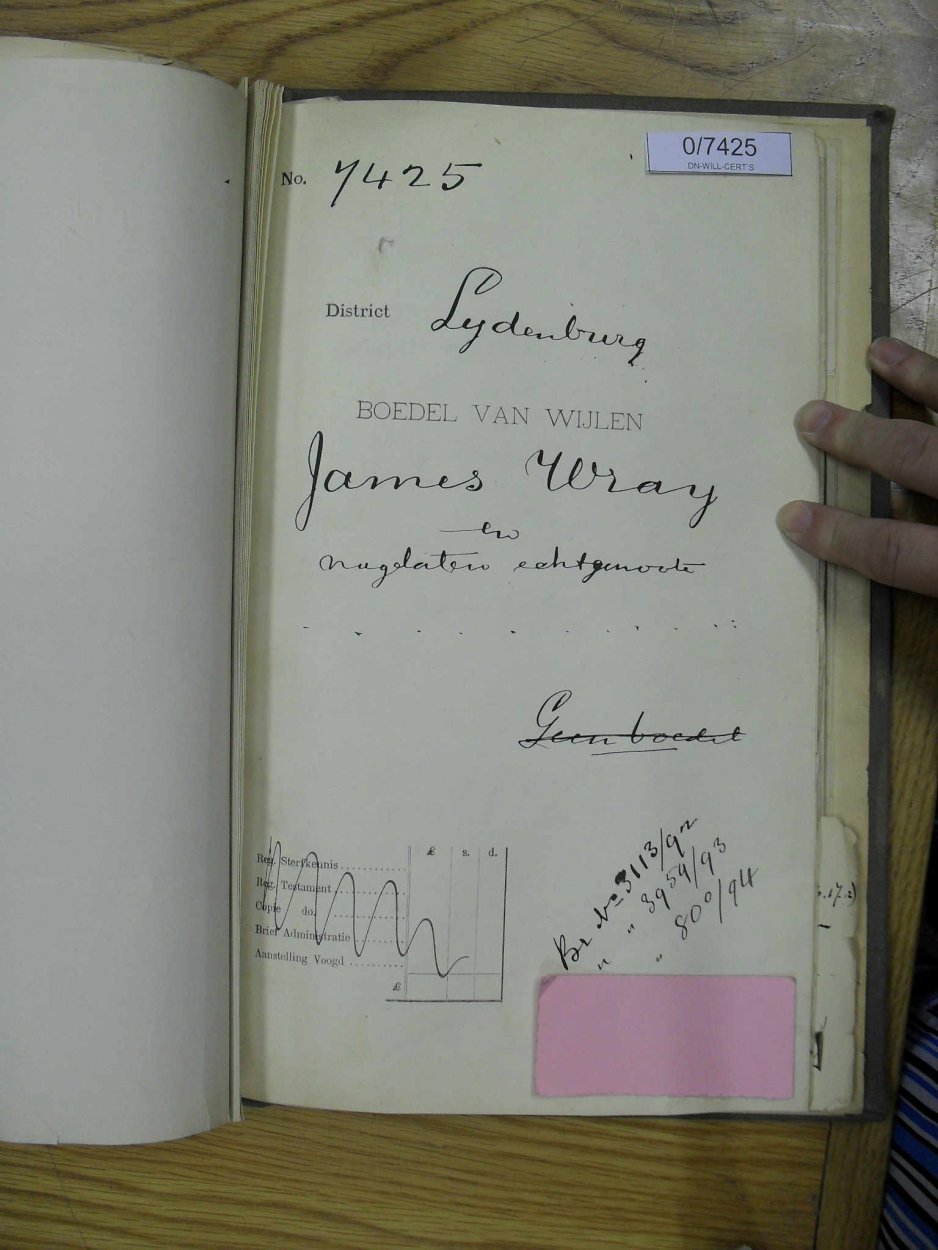 0/7425
DN-WILL-CERT S
No. 7425
District Lydenburg
BOEDEL VAN WIJLEN
James Wray
en
nagelaten echtgenoote
Geen boedel
£ s. d.
Reg. Sterfkennis
Reg. Testament
Copie do.
Brief Administratie
Aanstelling Voogd
£
Br No 3113/92
" 3959/93
" " 800/94